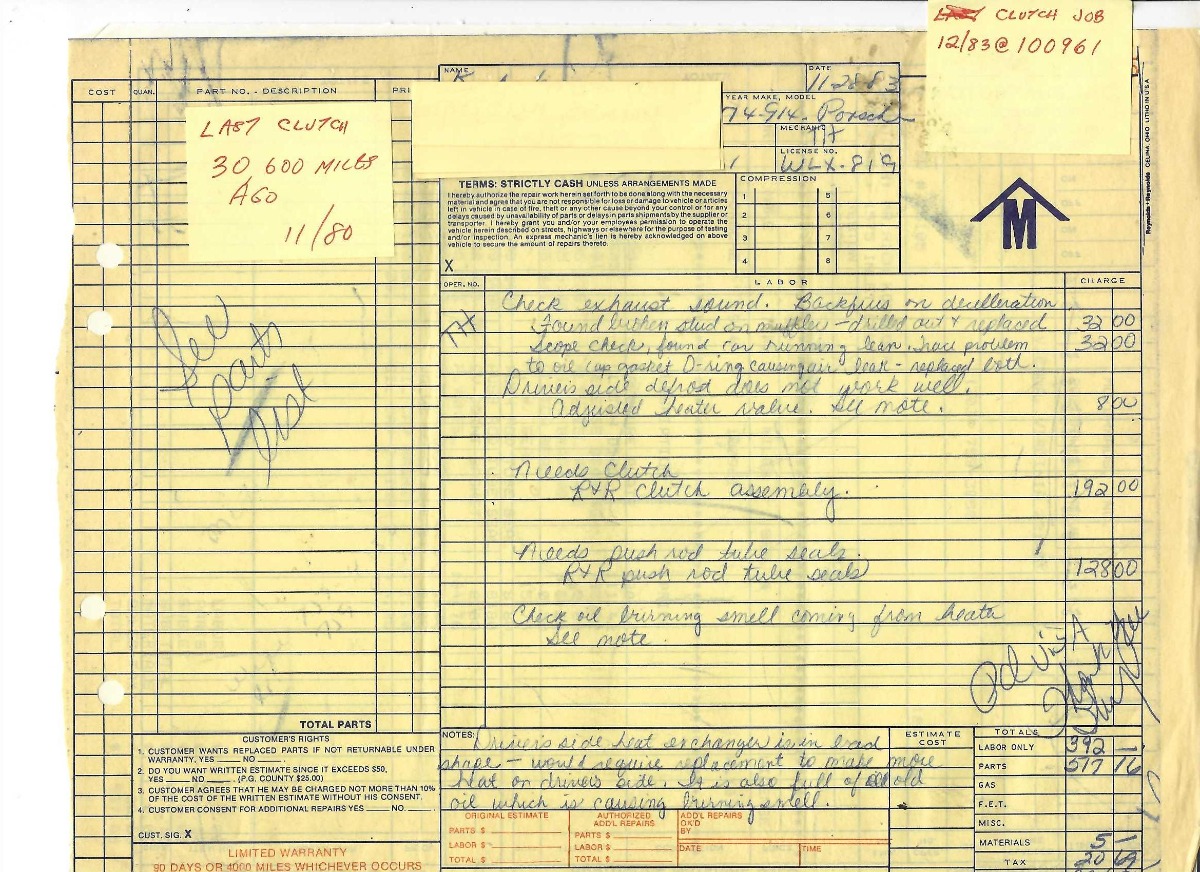 LAST CLUTCH JOB
12/83 @ 100961
COST
QUAN.
PART NO. - DESCRIPTION
PRI
LAST CLUTCH
30 600 MILES
AGO
11/80
See
parts
list
TOTAL PARTS
CUSTOMER'S RIGHTS
1. CUSTOMER WANTS REPLACED PARTS IF NOT RETURNABLE UNDER
WARRANTY. YES ___ NO ___.
2. DO YOU WANT WRITTEN ESTIMATE SINCE IT EXCEEDS $50,
YES ___ NO ___. (P.G. COUNTY $25.00)
3. CUSTOMER AGREES THAT HE MAY BE CHARGED NOT MORE THAN 10%
OF THE COST OF THE WRITTEN ESTIMATE WITHOUT HIS CONSENT.
4. CUSTOMER CONSENT FOR ADDITIONAL REPAIRS YES ___ NO ___.
CUST. SIG. X
LIMITED WARRANTY
90 DAYS OR 4000 MILES WHICHEVER OCCURS
NAME
DATE
11-28-83
YEAR MAKE, MODEL
74-914- Porsche
MECHANIC
TH
LICENSE NO.
WLX-819
TERMS: STRICTLY CASH UNLESS ARRANGEMENTS MADE
I hereby authorize the repair work herein set forth to be done along with the necessary
material and agree that you are not responsible for loss or damage to vehicle or articles
left in vehicle in case of fire, theft or any other cause beyond your control or for any
delays caused by unavailability of parts or delays in parts shipments by the supplier or
transporter. I hereby grant you and/or your employees permission to operate the
vehicle herein described on streets, highways or elsewhere for the purpose of testing
and/or inspection. An express mechanic's lien is hereby acknowledged on above
vehicle to secure the amount of repairs thereto.
X
COMPRESSION
1 5
2 6
3 7
4 8
M
Reynolds + Reynolds CELINA, OHIO LITHO IN U.S.A.
OPER. NO.
LABOR
CHARGE
Check exhaust sound. Backfires on decelleration
TH Found broken stud on muffler - drilled out & replaced 32 00
Scope check, found car running lean. problem 32 00
to oil cap gasket O-ring causing air leak - replaced both.
Driver's side defrost does not work well.
Adjusted heater valve. See note. 8 00
Needs Clutch
R&R Clutch assembly. 192 00
Needs push rod tube seals.
R&R push rod tube seals 128 00
Check oil burning smell coming from heater
See note.
Pd Visa
NOTES: Driver's side heat exchanger is in bad
shape - would require replacement to make more
heat on drivers side. It is also full of old
oil which is causing burning smell.
ORIGINAL ESTIMATE
PARTS $
LABOR $
TOTAL $
AUTHORIZED
ADD'L REPAIRS
PARTS $
LABOR $
TOTAL $
ADD'L REPAIRS
OK'D
BY
DATE
TIME
ESTIMATE
COST
TOTALS
LABOR ONLY 392 —
PARTS 517 76
GAS
F.E.T.
MISC.
MATERIALS 5 —
TAX 20 69